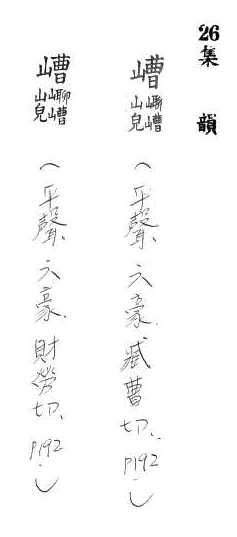 26集韻
嶆嶆山兒(平聲、六豪.臧曹切、P192.)
嶆嶆山兒(平聲、六豪.財勞切、P192.)